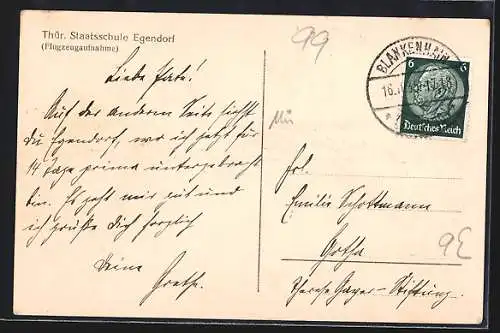 Thür. Staatsschule Egendorf
(Flugzeugaufnahme)
99
BLANKENHAIN
16.
6 6
Deutsches Reich
Liebe Käte!
Auf der anderen Seite siehst
du Egendorf, wo ich jetzt für
14 Tage prima untergebracht
bin. Es geht mir gut und
ich grüße Dich herzlich
Deine
Grethe.
Frl.
Emilie Schottmann
Gotha
Stiftung.
9E